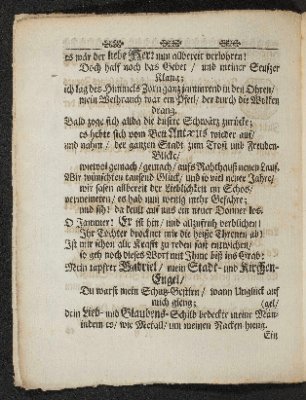 es wär der liebe Herr nun allbereit verlohren!
Doch half noch das Gebet / und meiner Seufzer
Klang;
ich lag des Himmels Zorn ganz jammrend in den Ohren/
mein Weihrauch war ein Pfeil/ der durch die Wolken
drang.
Bald zog sich allda die düstre Schwärz zurücke;
es hebte sich vom Bett Antæus wieder auf/
und nahm / der ganzen Stadt zum Trost und Freuden-
Blicke/
wiewol gemach/ gemach/ aufs Rahthhauß seinen Lauf.
Wir wünschten tausend Glück/ und so viel neue Jahre/
wir sasen allbereit der Lieblichkeit im Schos/
vermeineten/ es hab nun wenig mehr Gefahre;
und sih! da brült auf uns ein neuer Donner los.
O Jammer! Er ist hin/ und allzufrüh verblichen!
Ihr Töchter trocknet mir die heiße Threnen ab!
Ist mir schon alle Kraft zu reden fast entwichen/
so geh noch dieses Wort mit Ihme biß ins Grab:
Mein tapfrer Gabriel / mein Stadt- und Kirchen-
Engel/
Du warst mein Schutz- / wann Unglück auf
mich gieng; (gel/
dein Lieb- und Glaubens-Schild bedeckte meine Män-
indem es/ wie Metall/ um meinen Nacken hieng.
Ein